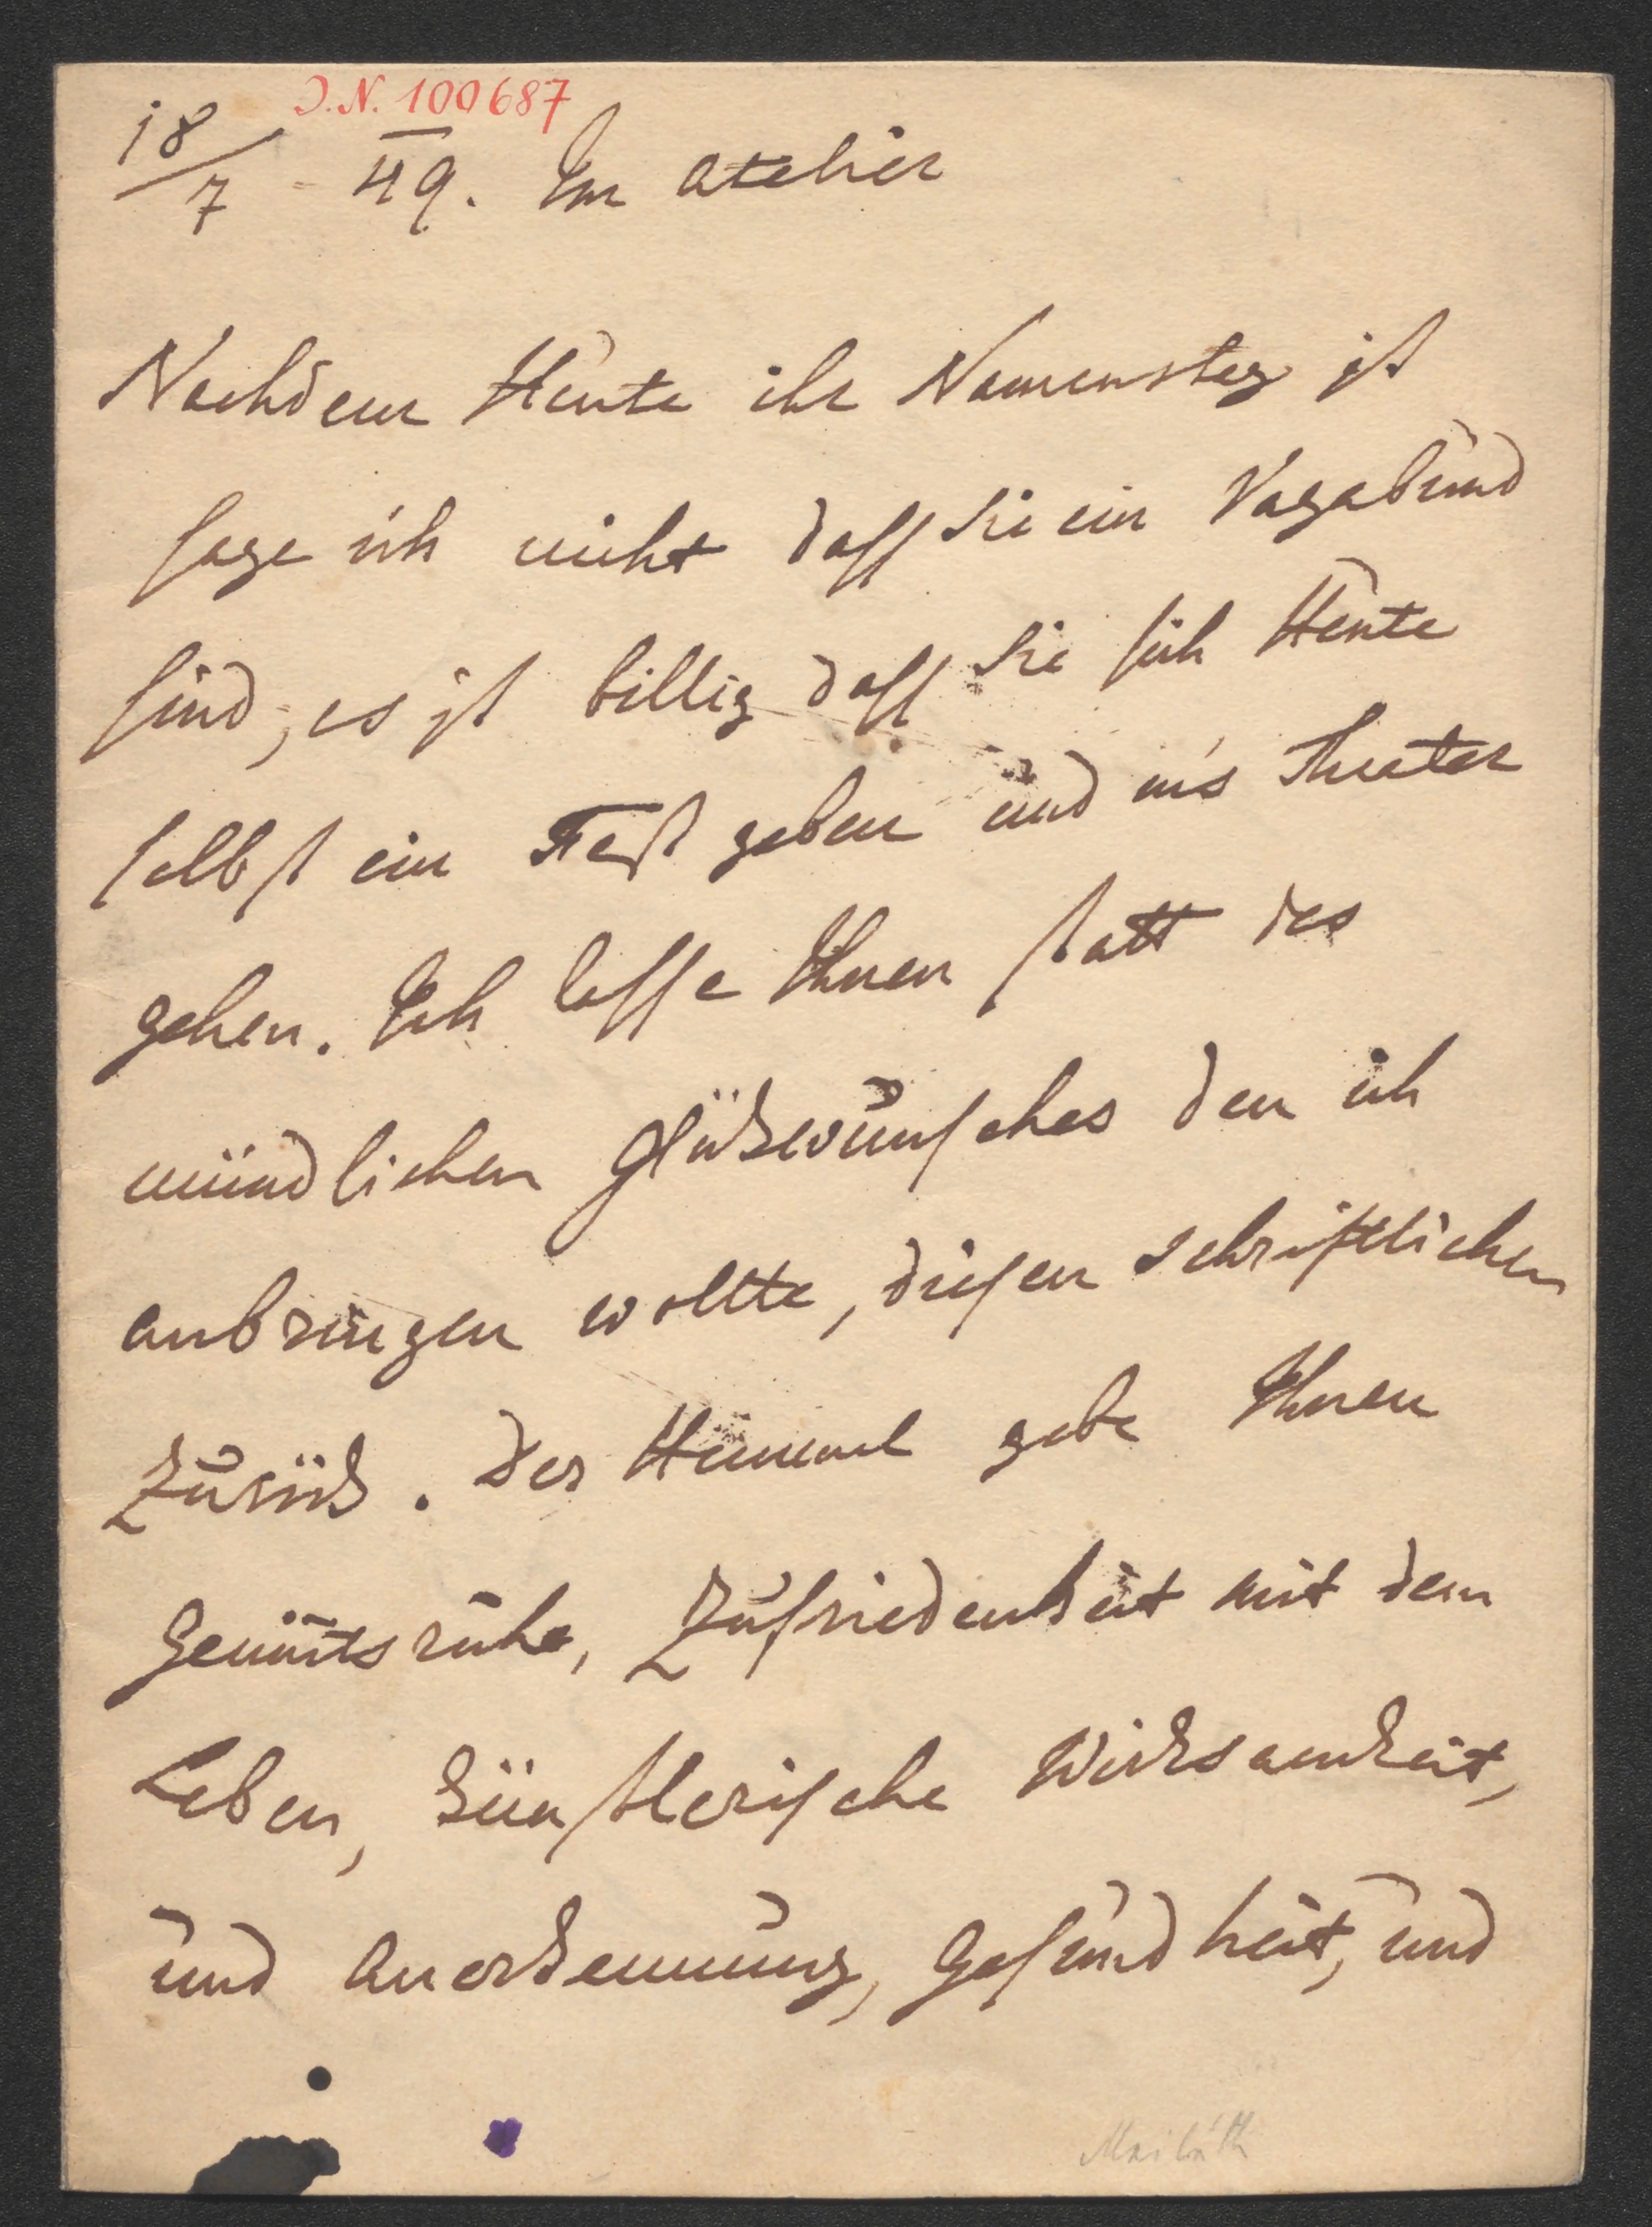 J.N. 100687
18/7 - 49. Im Atelier
Nachdem Heute ihr Namenstag ist
sage ich nicht dass Sie ein Vagabund
sind, es ist billig dass Sie sich Heute
selbst ein Fest geben und in's Theater
gehen. Ich lasse Ihnen statt des
mündlichen Glükwunsches den ich
anbringen wollte, diesen schriftlichen
Zurük. Der Himmel gebe Ihnen
Gemütsruhe, Zufriedenheit mit dem
Leben, künstlerische Wirksamkeit,
und Anerkennung, Gesundheit, und
Mailáth